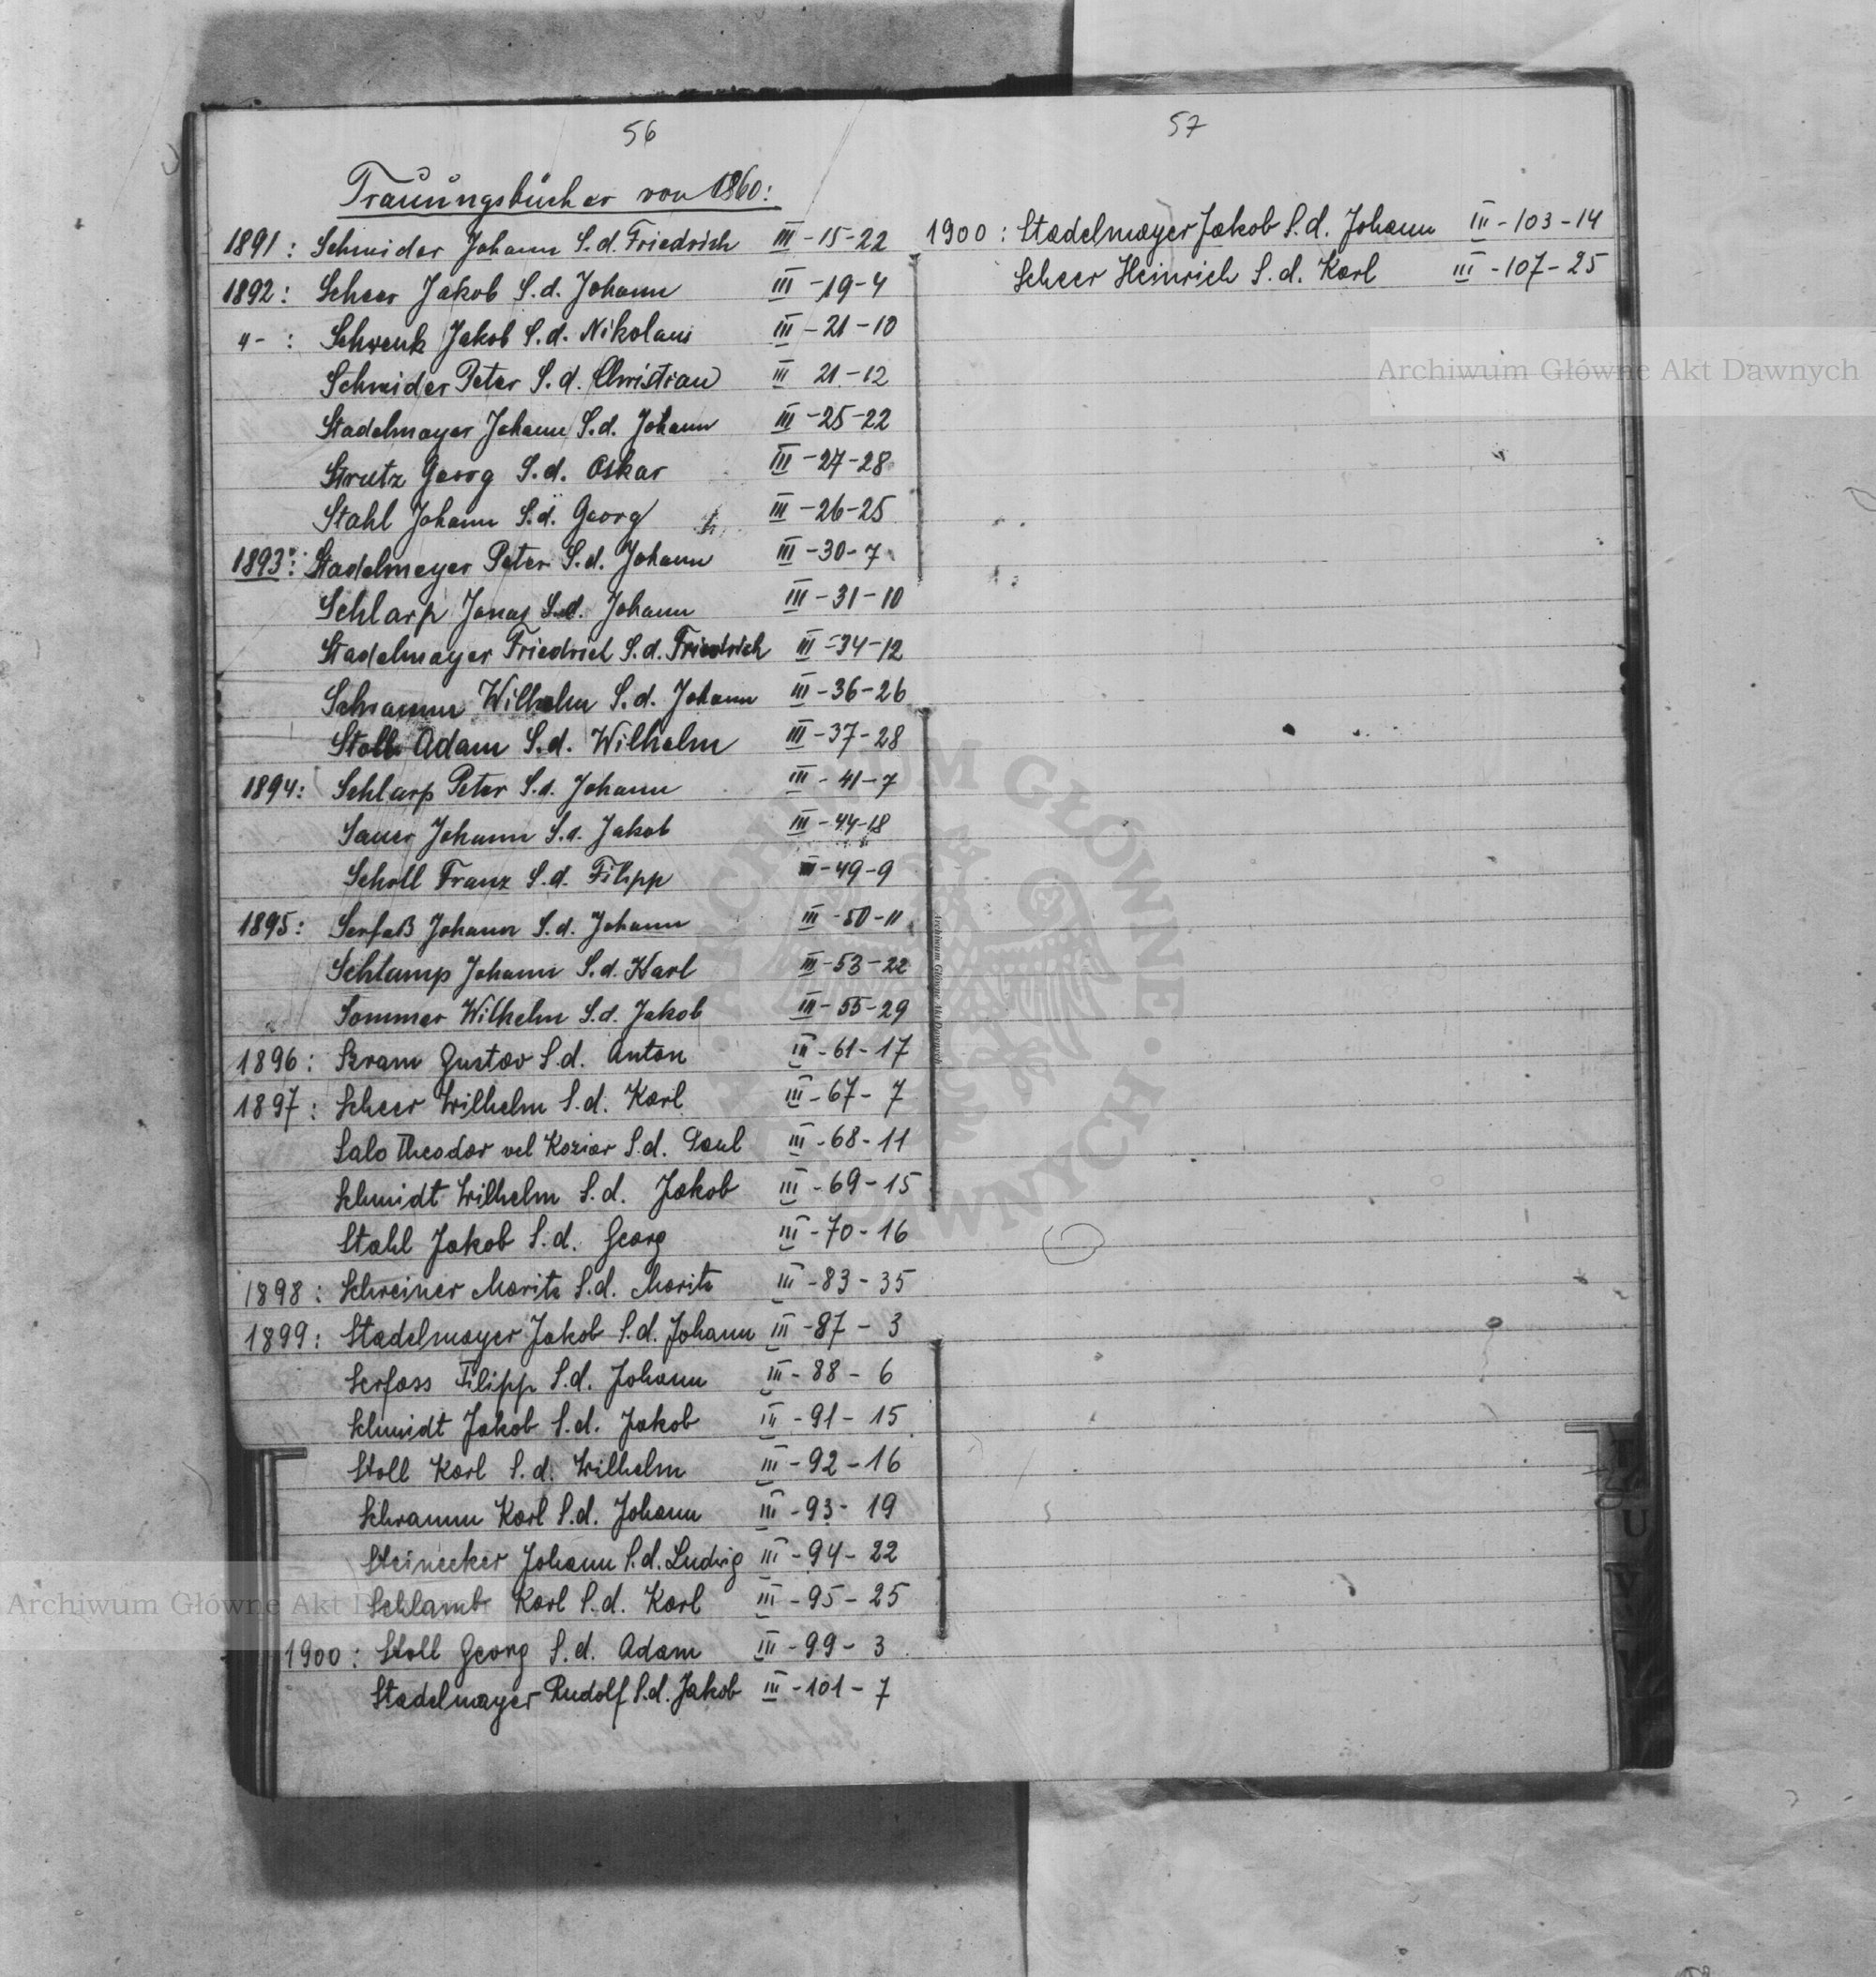 56
Trauungsbücher von 1860:
1891: Schmider Johann S.d. Friedrich III-15-22
1892: Scheer Jakob S.d. Johann III-19-4
"- : Schwenk Jakob S.d. Nikolaus III-21-10
Schmider Peter S.d. Christian III 21-12
Stadelmayer Johann S.d. Johann III-25-22
Strutz Georg S.d. Oskar III-27-28
Stahl Johann S.d. Georg III-26-25
1893: Stadelmeyer Peter S.d. Johann III-30-7
Schlarp Jonas S.d. Johann III-31-10
Stadelmayer Friedrich S.d. Friedrich III-34-12
Schramm Wilhelm S.d. Johann III-36-26
Stoll Adam S.d. Wilhelm III-37-28
1894: Schlarp Peter S.d. Johann III-41-7
Sauer Johann S.d. Jakob III-44-18
Scholl Franz S.d. Filipp III-49-9
1895: Serfaß Johann S.d. Johann III-50-11
Schlamp Johann S.d. Karl III-53-22
Sommer Wilhelm S.d. Jakob III-55-29
1896: Sram Gustav S.d. Anton III-61-17
1897: Scheer Wilhelm S.d. Karl III-67-7
Salo Theodor vel Koziar S.d. Paul III-68-11
Schmidt Wilhelm S.d. Jakob III-69-15
Stahl Jakob S.d. Georg III-70-16
1898: Schreiner Moritz S.d. Moritz III-83-35
1899: Stadelmayer Jakob S.d. Johann III-87-3
Serfass Filipp S.d. Johann III-88-6
Schmidt Jakob S.d. Jakob III-91-15
Stoll Karl S.d. Wilhelm III-92-16
Schramm Karl S.d. Johann III-93-19
Steinecker Johann S.d. Ludwig III-94-22
Schlamb Karl S.d. Karl III-95-25
1900: Stoll Georg S.d. Adam III-99-3
Stadelmayer Rudolf S.d. Jakob III-101-7
57
1900: Stadelmayer Jakob S.d. Johann III-103-14
Scheer Heinrich S.d. Karl III-107-25
Archiwum Główne Akt Dawnych
Archiwum Główne Akt Dawnych
T
U
V